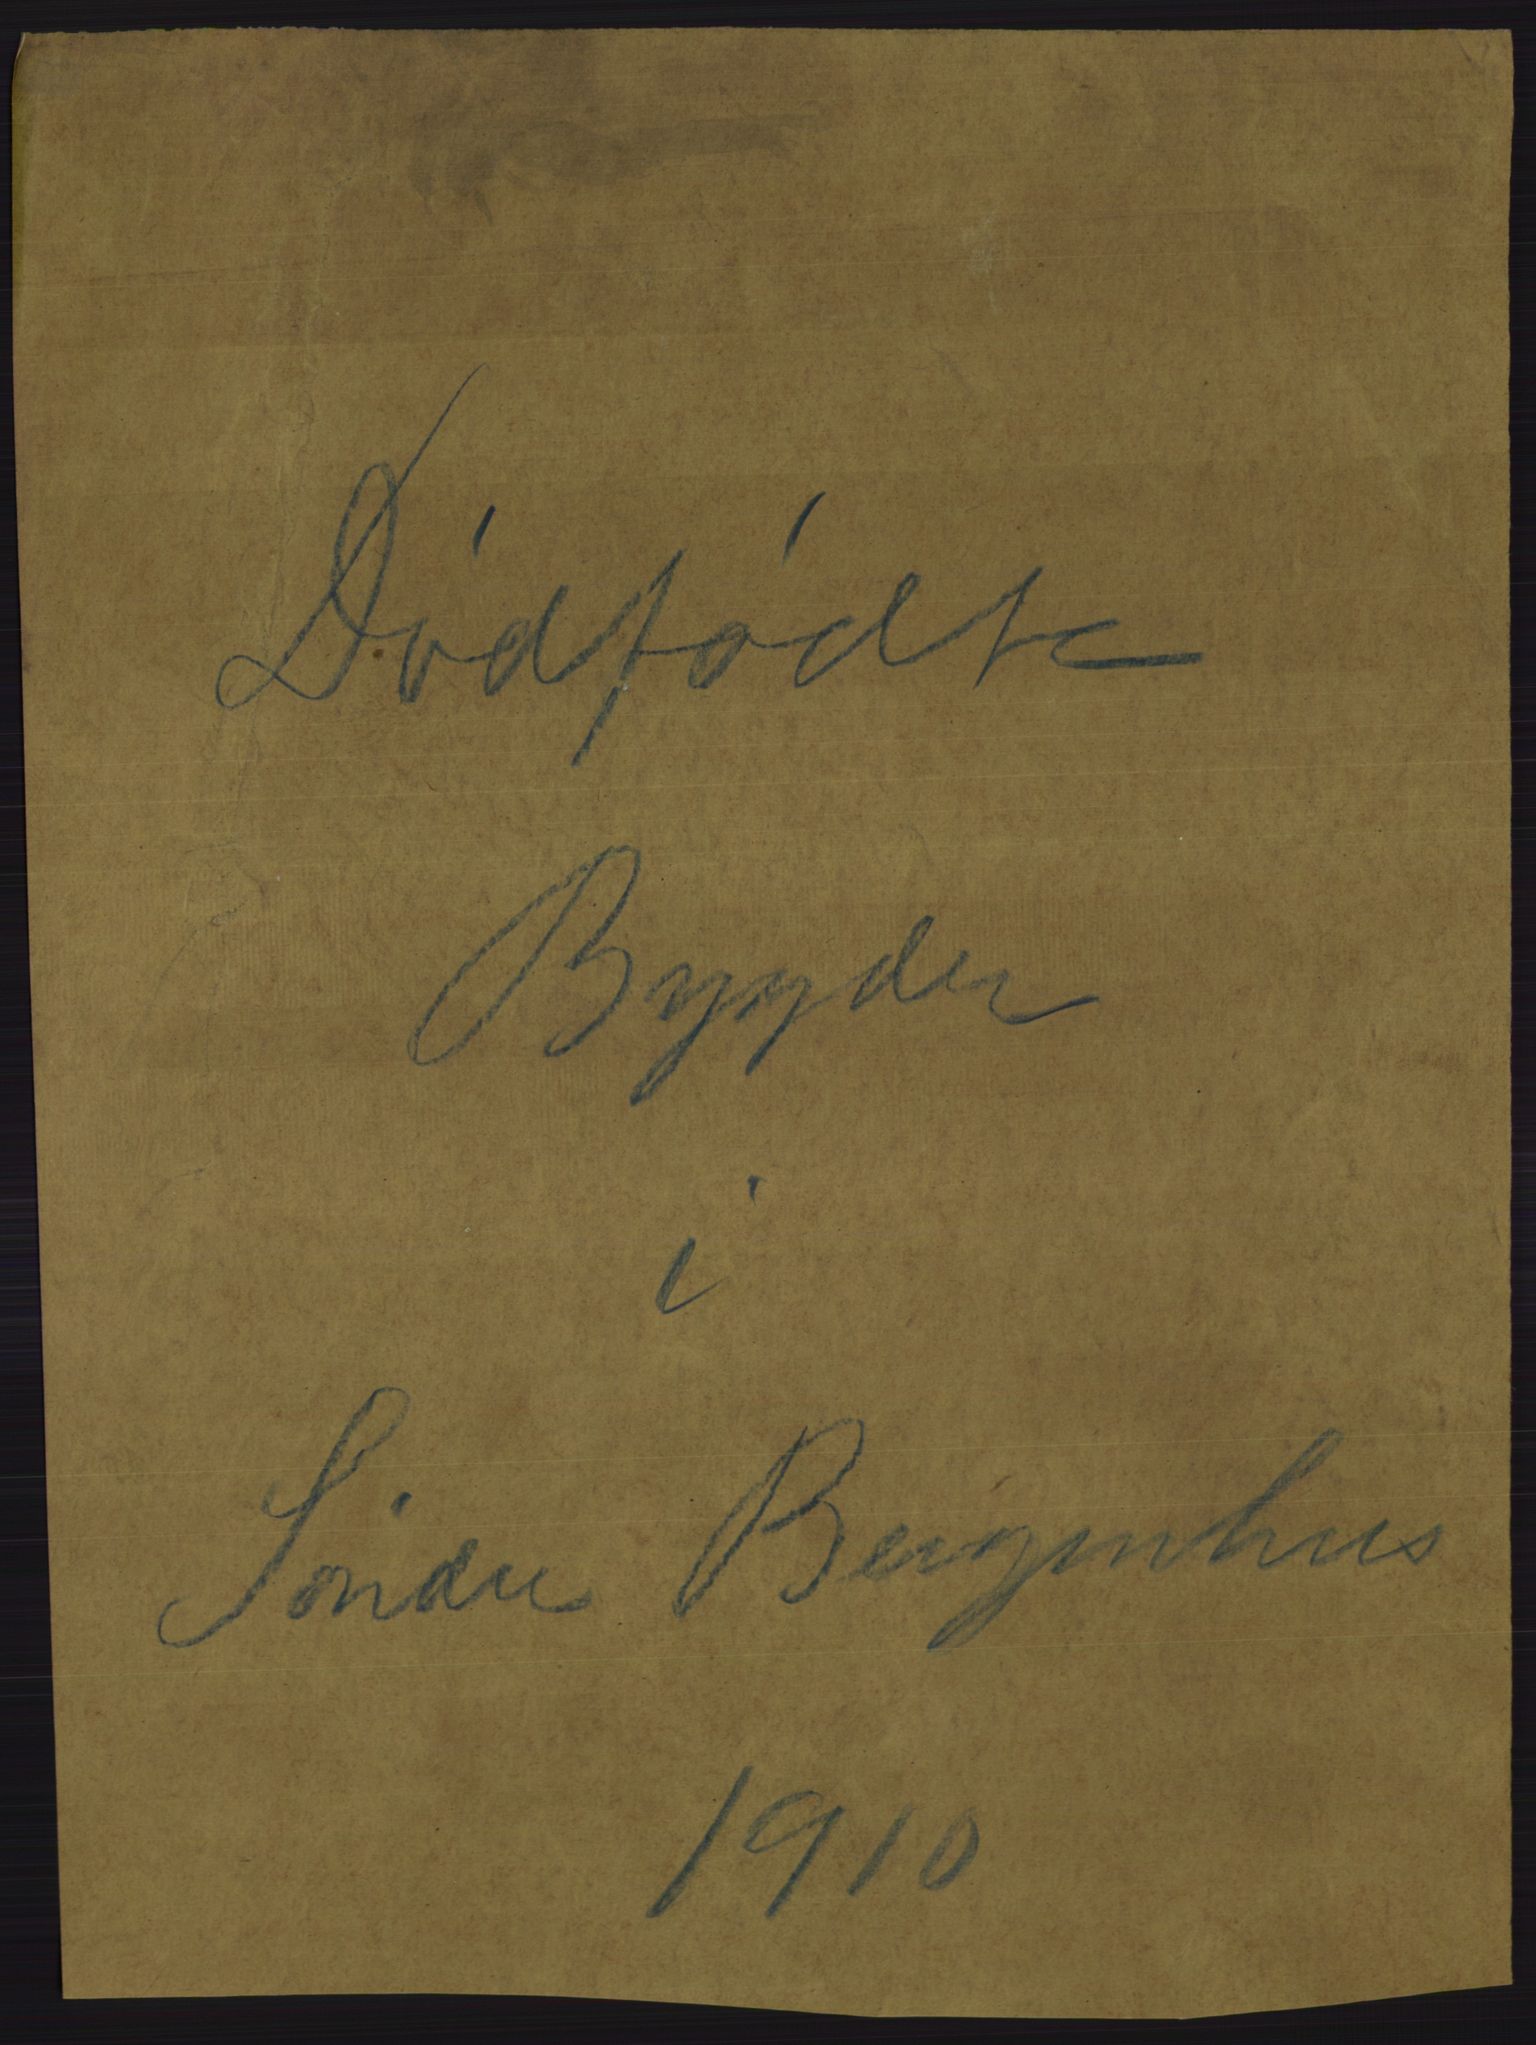 Dødfødte
Bygder
i
Søndre Bergenhus
1910